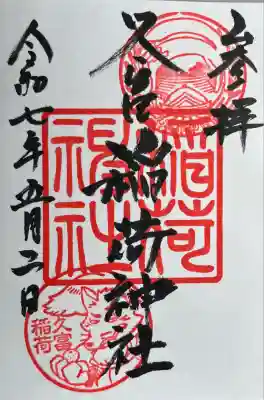 奉拝
久富稲荷神社
令和七年五月二日
稲荷神社
久富
稲荷